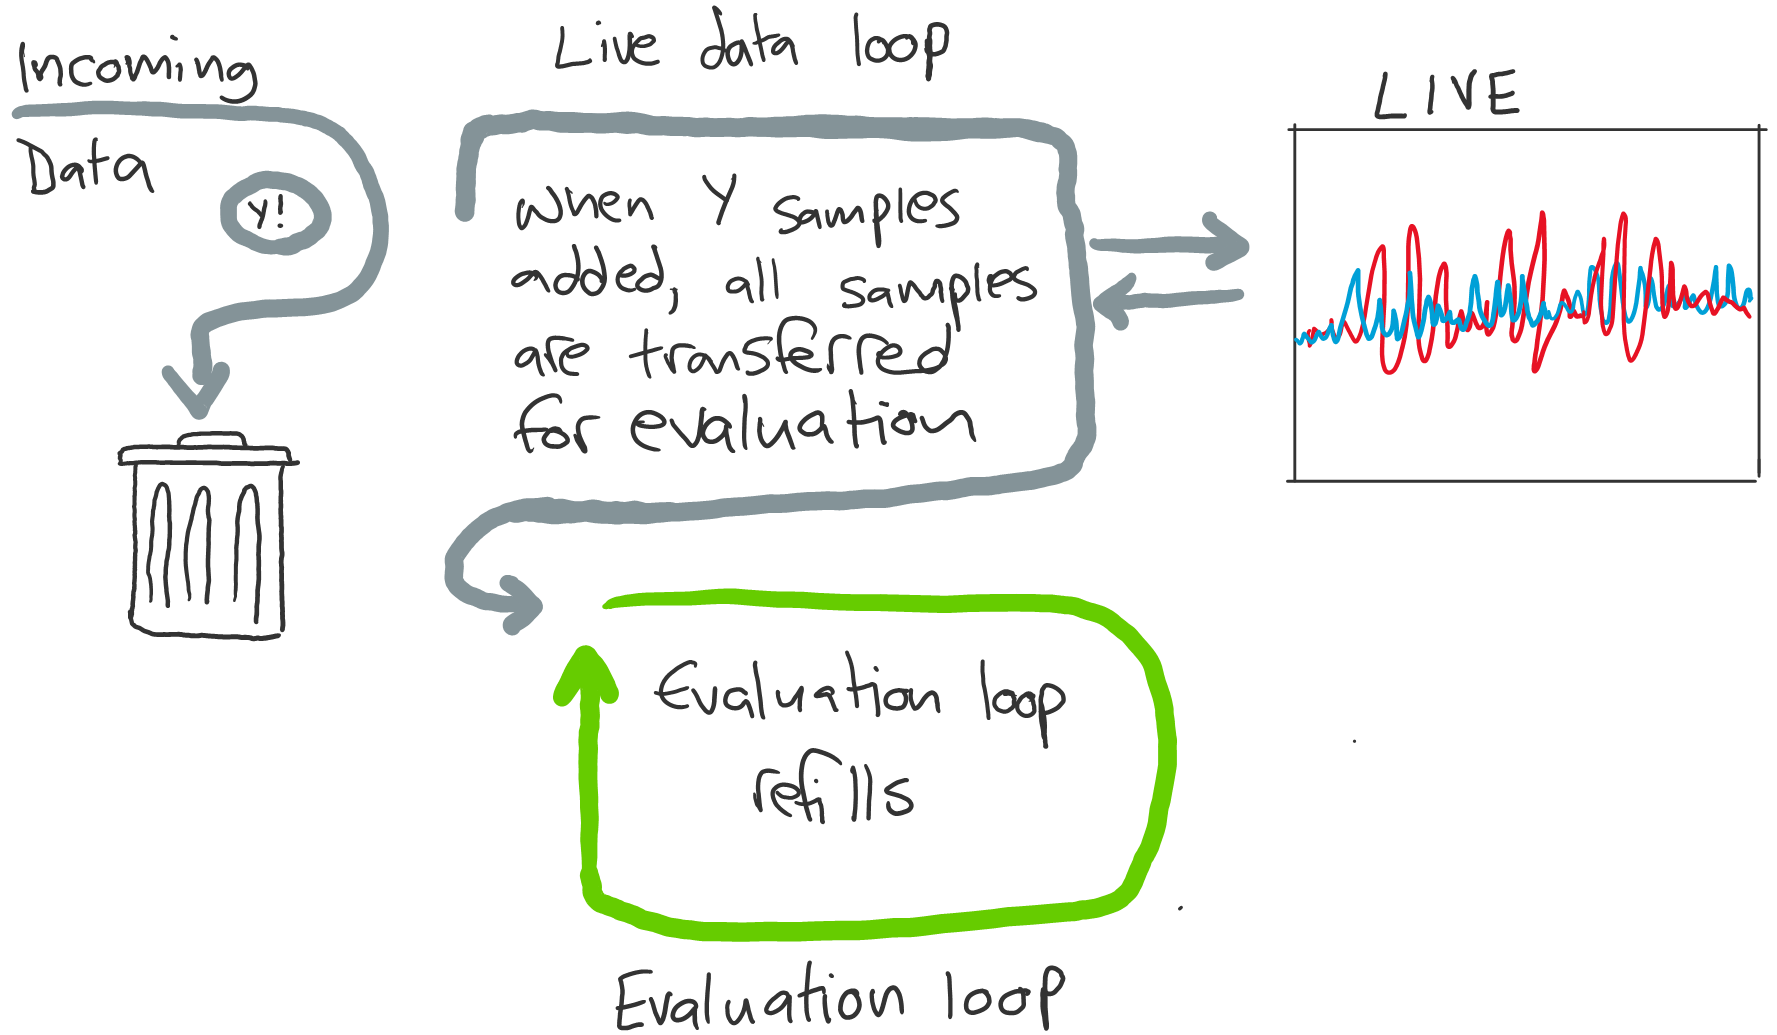 Incoming
Data
Y!
Live data loop
when Y samples
added, all samples
are transferred
for evaluation
LIVE
Evaluation loop
refills
Evaluation loop